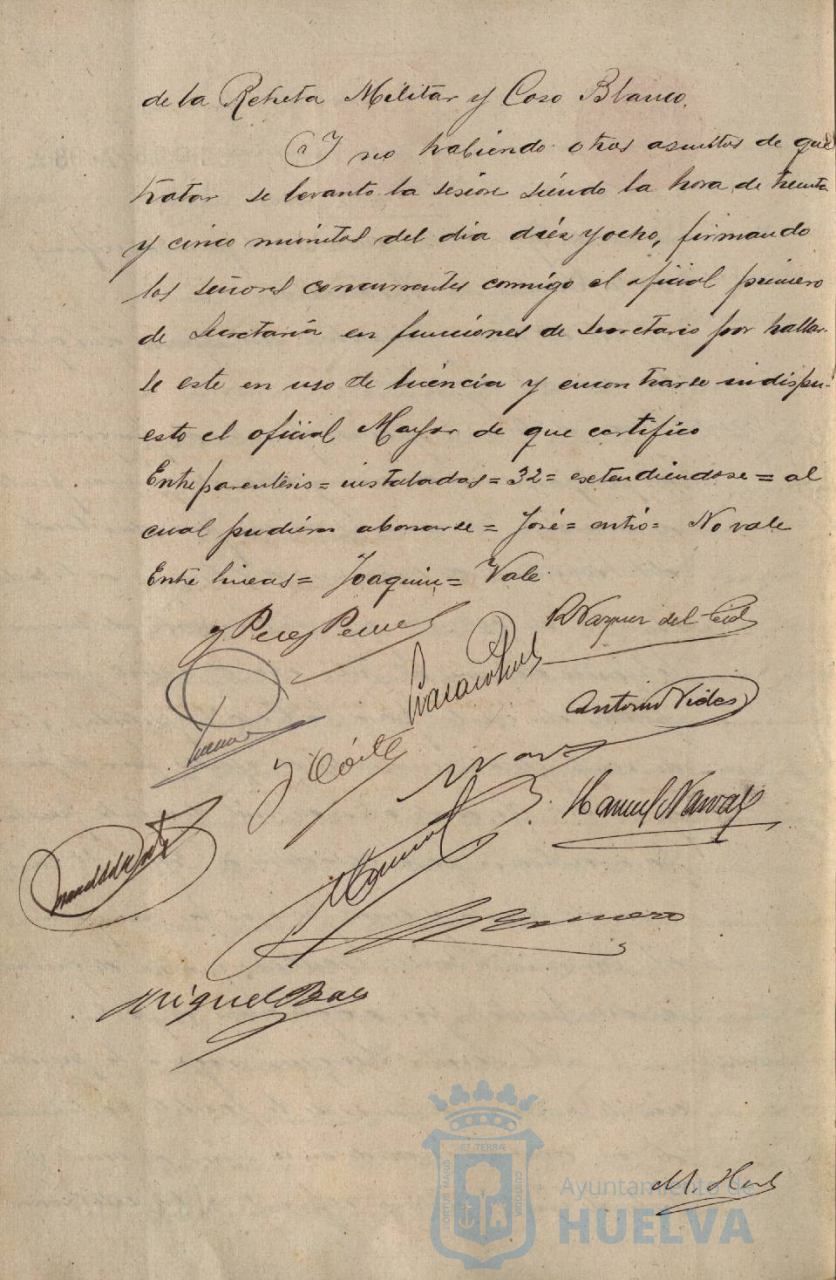 de la Retreta Militar y Coso Blanco.
Y no habiendo otros asuntos de que
tratar se levanto la sesión siendo la hora de treinta
y cinco minutos del dia diez y ocho, firmando
los señores concurrentes conmigo el oficial primero
de Secretaría en funciones de Secretario por hallar-
se este en uso de licencia y encontrarse indispu-
esto el oficial Mayor de que certifico
Entreparentesis = instaladas = 32 = extendiendose = al
cual pudiera abonarse = José = entró = No vale
Entre lineas = Joaquin = Vale
R Vazquez del
Antonio Vides
Manuel Narvaez
Romero
Miguel Baez
M.
Ayuntamiento de
HUELVA